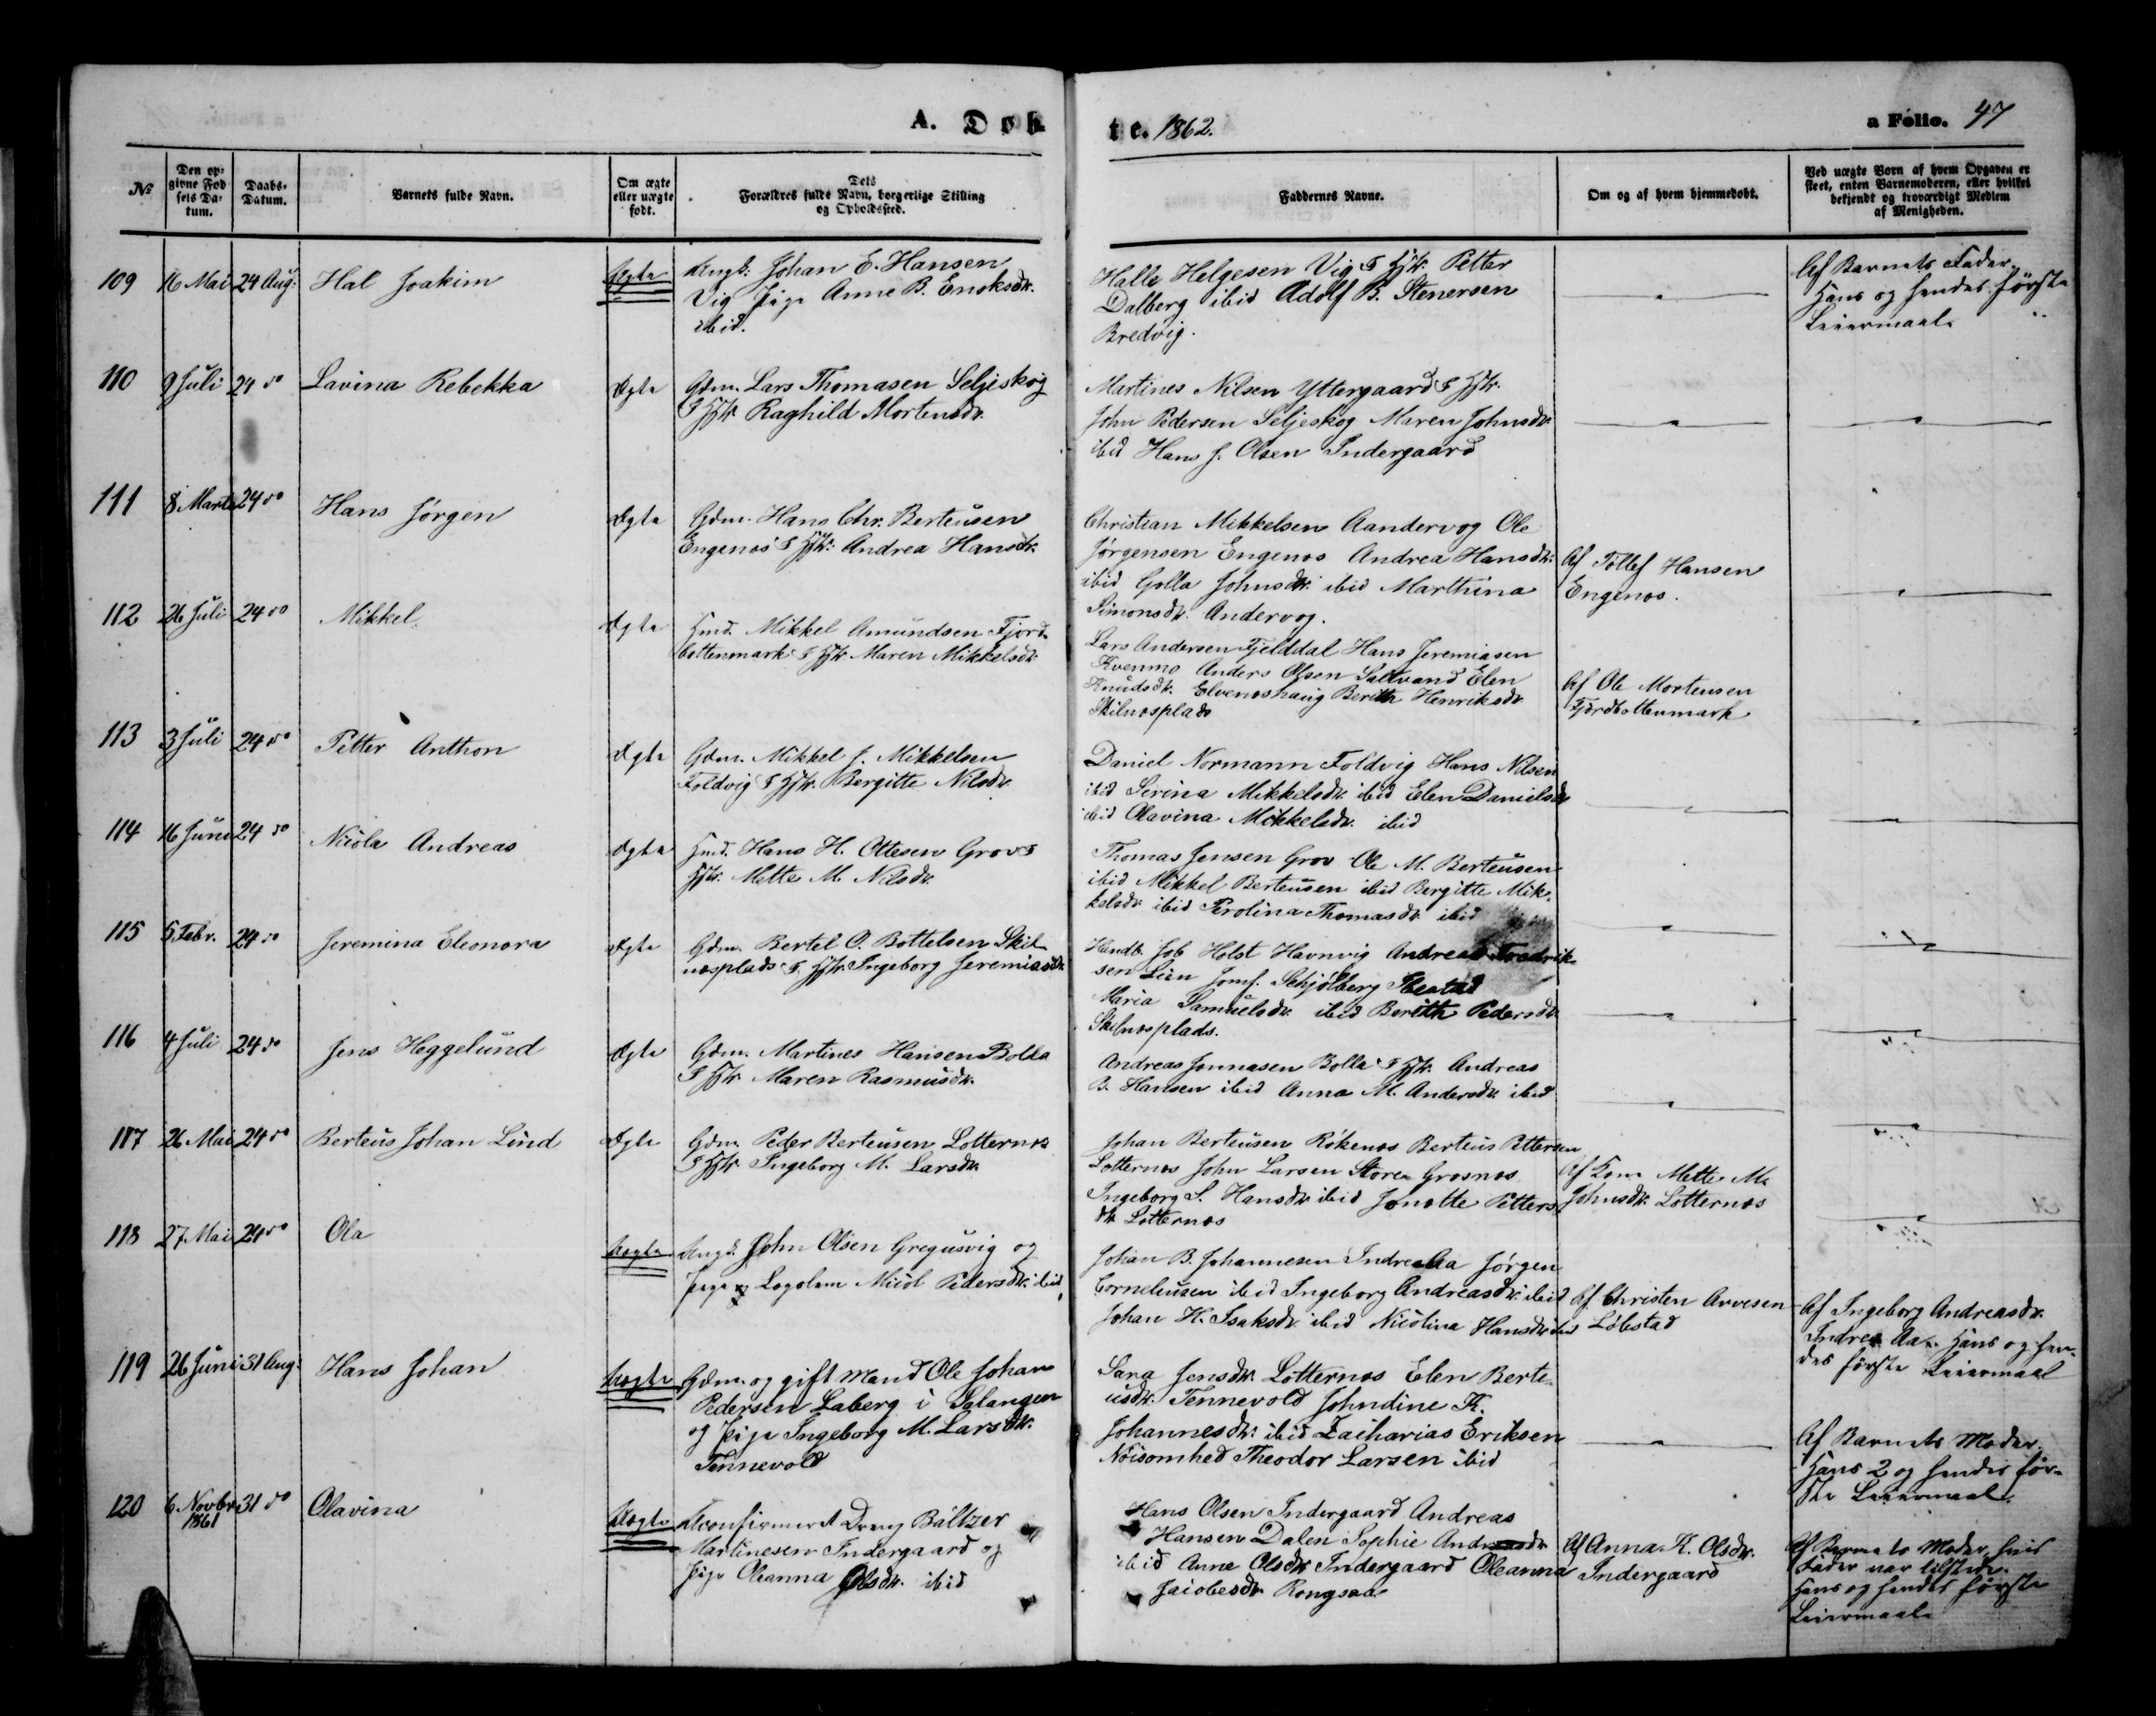 A. Døb
te. 1862.
a Folio. 47
№
Den op-
givne Fød
sels Da-
tum.
Daabs-
Datum.
Barnets fulde Navn.
Om ægte
eller uægte
født.
Dets
Forældres fulde Navn, borgerlige Stilling
og Opholdssted.
Faddernes Navne.
Om og af hvem hjemmedøbt.
Ved uægte Børn af hvem Opgaven er
skeet, enten Barnemoderen, eller hvilket
bekjendt og troværdigt Medlem
af Menigheden.
109 16 Mai 24 Aug: Hal Joakim Uægte
Ungk: Johan E. Hansen
Vig Pige Anne B. Enoksdr.
ibid.
Halle Helgesen Vig & Hstr. Petter
Dalberg ibid Adolf B. Stenersen
Bredvig.
Af Barnets Fader.
Hans og hendes første
Leiermaal.
110 9 Juli 24 do Lavina Rebekka Ægte
Gdm. Lars Thomasen Seljeskog
& Hstr Raghild Mortensdr.
Martines Nilsen Yttergaard & Hstr.
John Pedersen Seljeskog Maren Johnsdr.
ibid Hans J. Olsen Indergaard
111 8 Marts 24 do Hans Jørgen Ægte
Gdm. Hans Chr. Berteusen
Engenæs & Hstr: Andrea Hansdr.
Christian Mikkelsen Aandervog Ole
Jørgensen Engenæs Andrea Hansdr:
ibid Golla Johnsdr. ibid Marthina
Simonsdr. Andervog.
Af Tollef Hansen
Engenæs.
112 26 Juli 24 do Mikkel. Ægte
Hmd. Mikkel Amundsen Fjord-
bottenmark & Hstr Maren Mikkelsdr
Lars Andersen Fjelddal Hans Jeremiasen
Kvenmo Anders Olsen Saltvand Elen
Knudsdr. Elveneshaug Berith Henriksdr
Skilnæsplads
Af Ole Mortensen
Fjordbottenmark
113 3 Juli 24 do Petter Anthon Ægte
Gdm. Mikkel J. Mikkelsen
Foldvig & Hstr. Bergitte Nilsdr.
Daniel Normann Foldvig Hans Nilsen
ibid Sirina Mikkelsdr. ibid Elen Danielsdr
ibid Olavina Mikkelsdr. ibid
114 16 Juni 24 do Nicola Andreas Ægte
Hmd. Hans H. Ottesen Grov &
Hstr. Mette M. Nilsdr.
Thomas Jensen Grov Ole M. Berteusen
ibid Mikkel Berteusen ibid Bergitte Mik-
kelsdr ibid Perolina Thomasdr. ibid
115 5 Febr. 24 do Jeremina Eleonora Ægte
Gdm. Bertel O. Bottelsen Skil-
næsplads & Hstr. Ingeborg Jeremiasdr
Handlb. Job Holst Havnvig Andreas Fredrik-
sen Lien Jomf. Schjølberg Ibestad
Maria Samuelsdr. ibid Berith Pedersdr
Skilnæsplads.
116 4 Juli 24 do Jens Heggelund Ægte
Gdm. Martines Hansen Bolla
& Hstr Maren Rasmusdr.
Andreas Jonnasen Bolla & Hstr. Andreas
B. Hansen ibid Anna M. Andersdr ibid
117 26 Mai 24 do Berteus Johan Lind Ægte
Gdm. Peder Berteusen Lotternæs
& Hstr Ingeborg M. Larsdr.
Johan Berteusen Røkenæs Berteus Pettersen
Lotternæs John Larsen Store Grosnæs
Ingeborg S. Hansdr ibid Jonette Petters
dr. Lotternæs
Af Kone Mette M.
Johnsdr. Lotternæs
118 27 Mai 24 do Ola Uægte
Ungk. John Olsen Gregusvig og
Pige Logolem Micol Pedersdr. ibid.
Johan B. Johannesen Indre Aa Jørgen
Corneliusen ibid Ingeborg Andreasdr. ibid
Johan H. Isaksdr. ibid Nicolina Hansdr ibid
Af Christen Arvesen
Løbstad
Af Ingeborg Andreasdr.
Indre Aa. Hans og hen-
des første Leiermaal
119 26 Juni 31 Aug: Hans Johan Uægte
Gdm. og gift Mand Ole Johan
Pedersen Laberg i Salangen
og Pige Ingeborg M. Larsdr.
Tennevold
Sara Jensdr. Lotternæs Elen Berte-
usdr. Tennevold Johndine K.
Johannesdr: ibid Zacharias Eriksen
Nøisomhed Theodor Larsen ibid
Af Barnets Moder.
Hans 2 og hendes før-
ste Leiermaal.
120 6 Novbr 31 do Olavina Uægte
1861
Ukonfirmeret Dreng Baltzer
Martinesen Indergaard og
Pige Oleanna Olsdr. ibid
Hans Olsen Indergaard Andreas
Hansen Dalen Sophie Andreasdr
ibid Anne Olsdr Indergaard Oleanna
Jacobesdr. Rongsaa
Af Anna K. Olsdr.
Indergaard
Af Barnets Moder, hvis
Fader var tilstede.
Hans og hendes første
Leiermaal